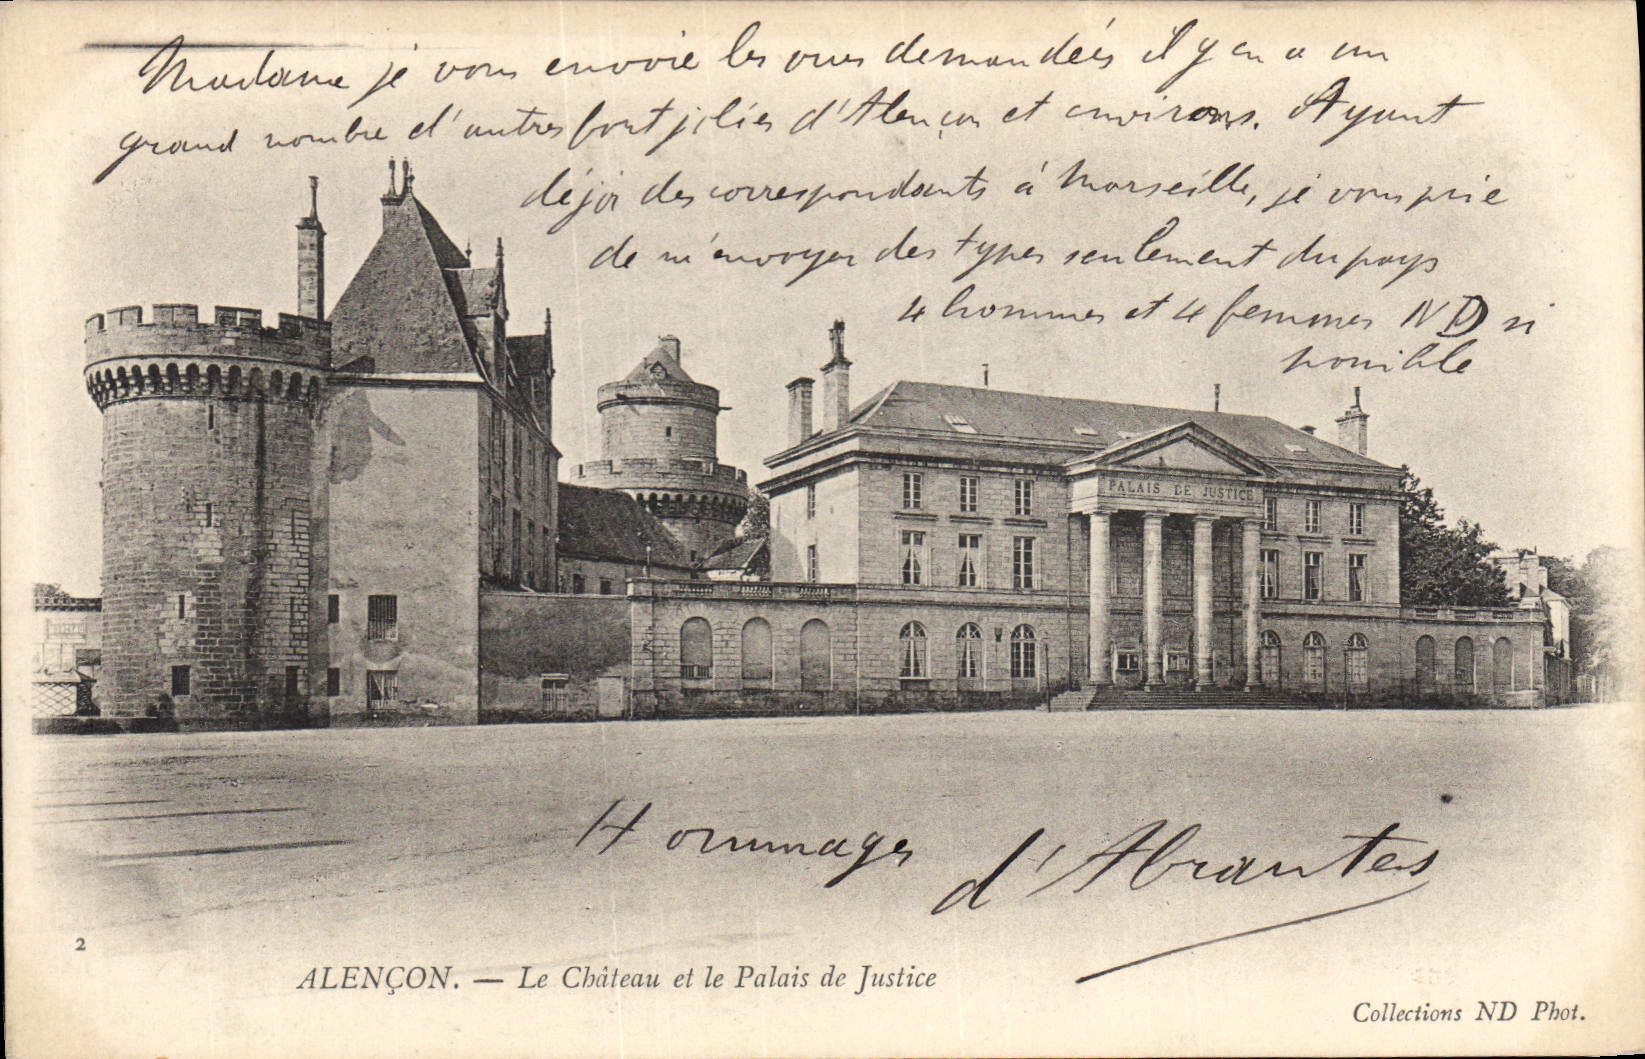 Madame je vous envoie les vues demandées il y en a un
grand nombre d'autres fort jolies d'Alençon et environs. Ayant
déjà des correspondants à Marseille, je vous prie
de m'envoyer des types seulement du pays
4 hommes et 4 femmes ND si
possible
PALAIS DE JUSTICE
Hommages
d'Abrantes
2
ALENÇON. — Le Château et le Palais de Justice
Collections ND Phot.